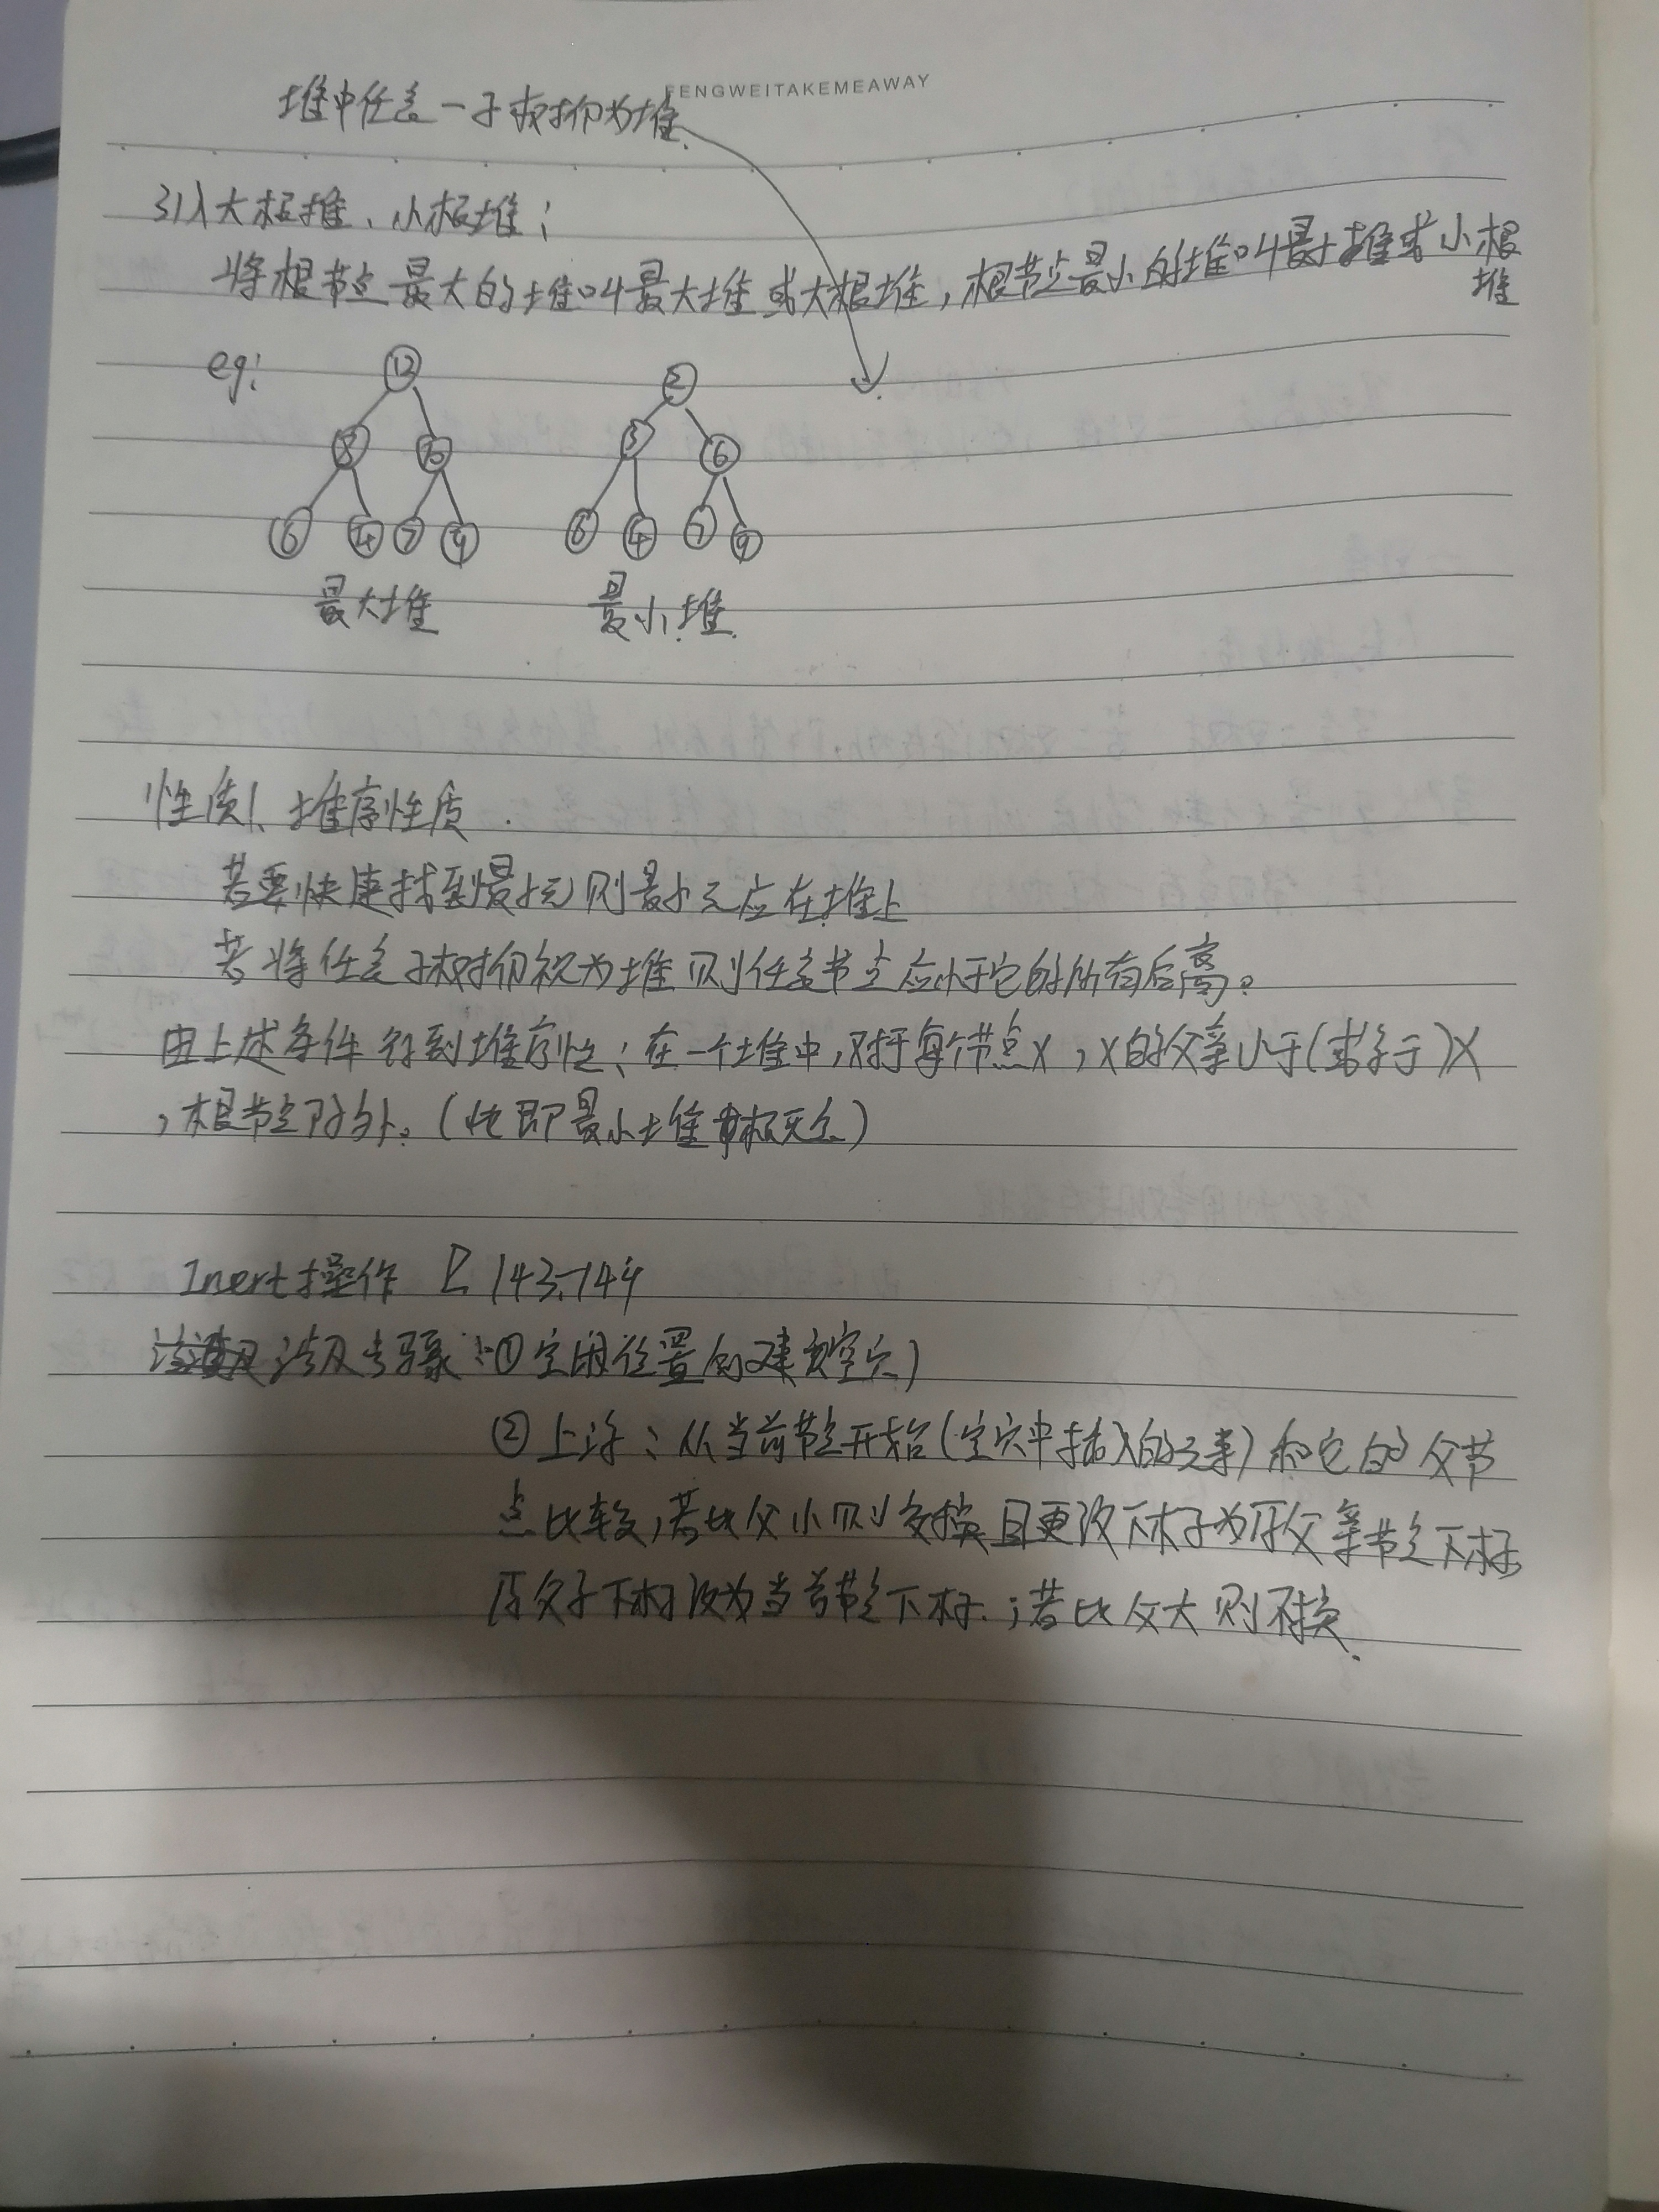 FENGWEITAKEMEAWAY
堆中任意一子树仍为堆
引入大根堆、小根堆:
将根节点最大的堆叫最大堆或大根堆,根节点最小的堆叫最小堆或小根
堆
eg:
12 2
8 10 3 6
6 4 7 9 6 4 7 9
最大堆 最小堆
性质1、堆序性质.
若要快速找到最小元则最小元应在堆上
若将任意子树仍视为堆则任意节点应小于它的所有后裔。
由上述条件得到堆序性:在一个堆中,对于每个节点X,X的父亲小于(或等于)X
,根节点除外。(也即最小堆中根无父)
Inert操作 P143-144
涉及步骤:①空闲位置创建空穴
②上滤:从当前节点开始(空穴中插入的元素)和它的父节
点比较,若比父小则交换且更改下标为原父亲节点下标
原父子下标改为当前节点下标.;若比父大则不换.